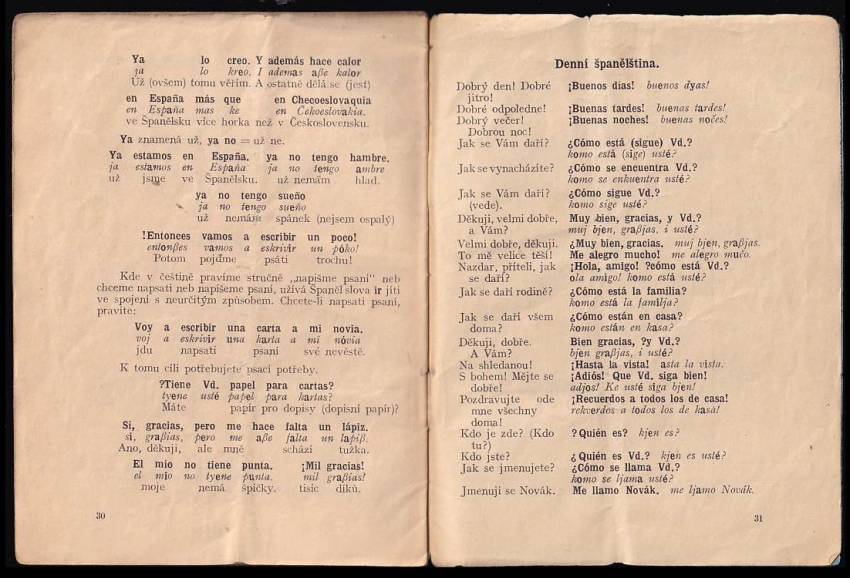 Ya lo creo. Y además hace calor
ja lo kreo. I ademas aße kalor
Už (ovšem) tomu věřím. A ostatně dělá se (jest)
en España más que en Checoeslovaquia
en Espaňa mas ke en Čekoeslovakia.
ve Španělsku více horka než v Československu.
Ya znamená už, ya no = už ne.
Ya estamos en España, ya no tengo hambre.
ja estamos en Espaňa ja no tengo ambre
už jsme ve Španělsku. už nemám hlad.
ya no tengo sueño
ja no tengo sueňo
už nemám spánek (nejsem ospalý)
!Entonces vamos a escribir un poco!
entonßes vamos a eskrivir un póko!
Potom pojďme psáti trochu!
Kde v češtině pravíme stručně „napišme psaní" neb
chceme napsati neb napíšeme psaní, užívá Španěl slova ir jíti
ve spojení s neurčitým způsobem. Chcete-li napsati psaní,
pravíte:
Voy a escribir una carta a mi novia.
voj a eskrivir una karta a mi nóvia
jdu napsati psaní své nevěstě.
K tomu cíli potřebujete psací potřeby.
?Tiene Vd. papel para cartas?
tyene usté papel para kartas?
Máte papír pro dopisy (dopisní papír)?
Si, gracias, pero me hace falta un lápiz.
si, graßias, pero me aße falta un lapiß.
Ano, děkuji, ale mně schází tužka.
El mio no tiene punta. ¡Mil gracias!
el mio no tyene punta. mil graßias!
moje nemá špičky. tisíc díků.
30
Denní španělština.
Dobrý den! Dobré ¡Buenos dias! buenos dyas!
jitro!
Dobré odpoledne! ¡Buenas tardes! buenas tardes!
Dobrý večer! ¡Buenas noches! buenas nočes!
Dobrou noc!
Jak se Vám daří? ¿Cómo está (sigue) Vd.?
komo está (sige) usté?
Jak se vynacházíte? ¿Cómo se encuentra Vd.?
komo se enkuentra usté?
Jak se Vám daří? ¿Cómo sigue Vd.?
(vede). komo sige usté?
Děkuji, velmi dobře, Muy bien, gracias, y Vd.?
a Vám? muj bjen, graßjas, i usté?
Velmi dobře, děkuji. ¿Muy bien, gracias. muj bjen, graßjas.
To mě velice těší! Me alegro mucho! me alegro mučo.
Nazdar, příteli, jak ¡Hola, amigo! ?cómo está Vd.?
se daří? ola amigo! komo está usté?
Jak se daří rodině? ¿Cómo está la familia?
komo está la familja?
Jak se daří všem ¿Cómo están en casa?
doma? komo están en kasa?
Děkuji, dobře. Bien gracias, ?y Vd.?
A Vám? bjen graßjas, i usté?
Na shledanou! ¡Hasta la vista! asta la vista.
S bohem! Mějte se ¡Adiós! Que Vd. siga bien!
dobře! adjos! Ke usté siga bjen!
Pozdravujte ode ¡Recuerdos a todos los de casa!
mne všechny rekuerdos a todos los de kasa!
doma!
Kdo je zde? (Kdo ?Quién es? kjen es?
tu?)
Kdo jste? ¿Quién es Vd.? kjen es usté?
Jak se jmenujete? ¿Cómo se llama Vd.?
komo se ljama usté?
Jmenuji se Novák. Me llamo Novák. me ljamo Novák.
31